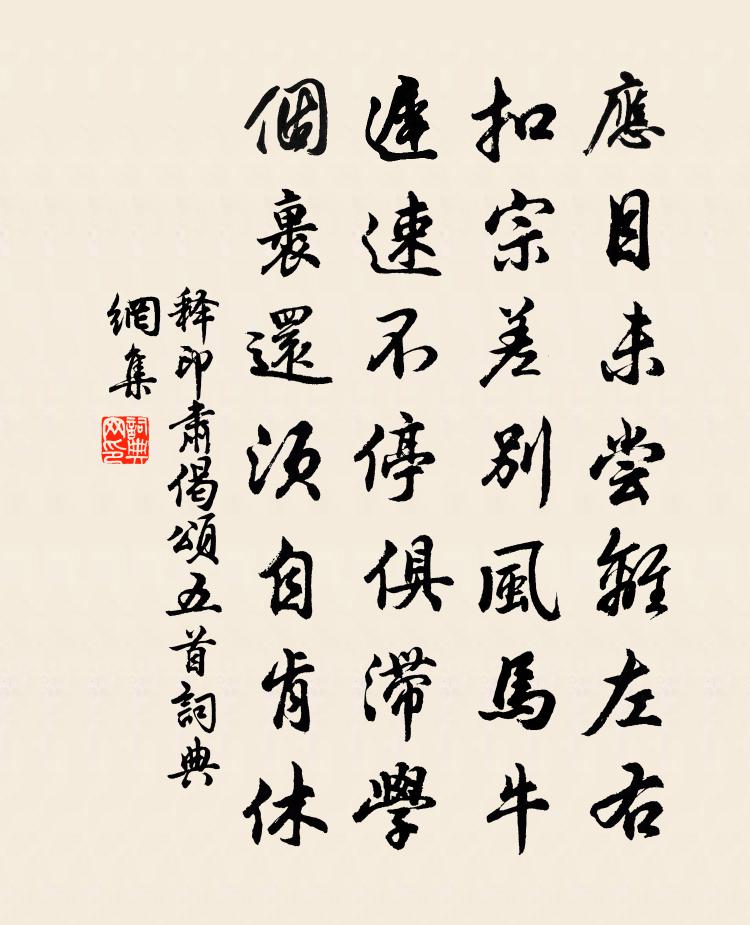 應目未嘗離左右
扣宗差別風馬牛
遲速不停俱滯學
個裏還須自肯休
释印肃偈頌五首詞典
網集
詞典
网印